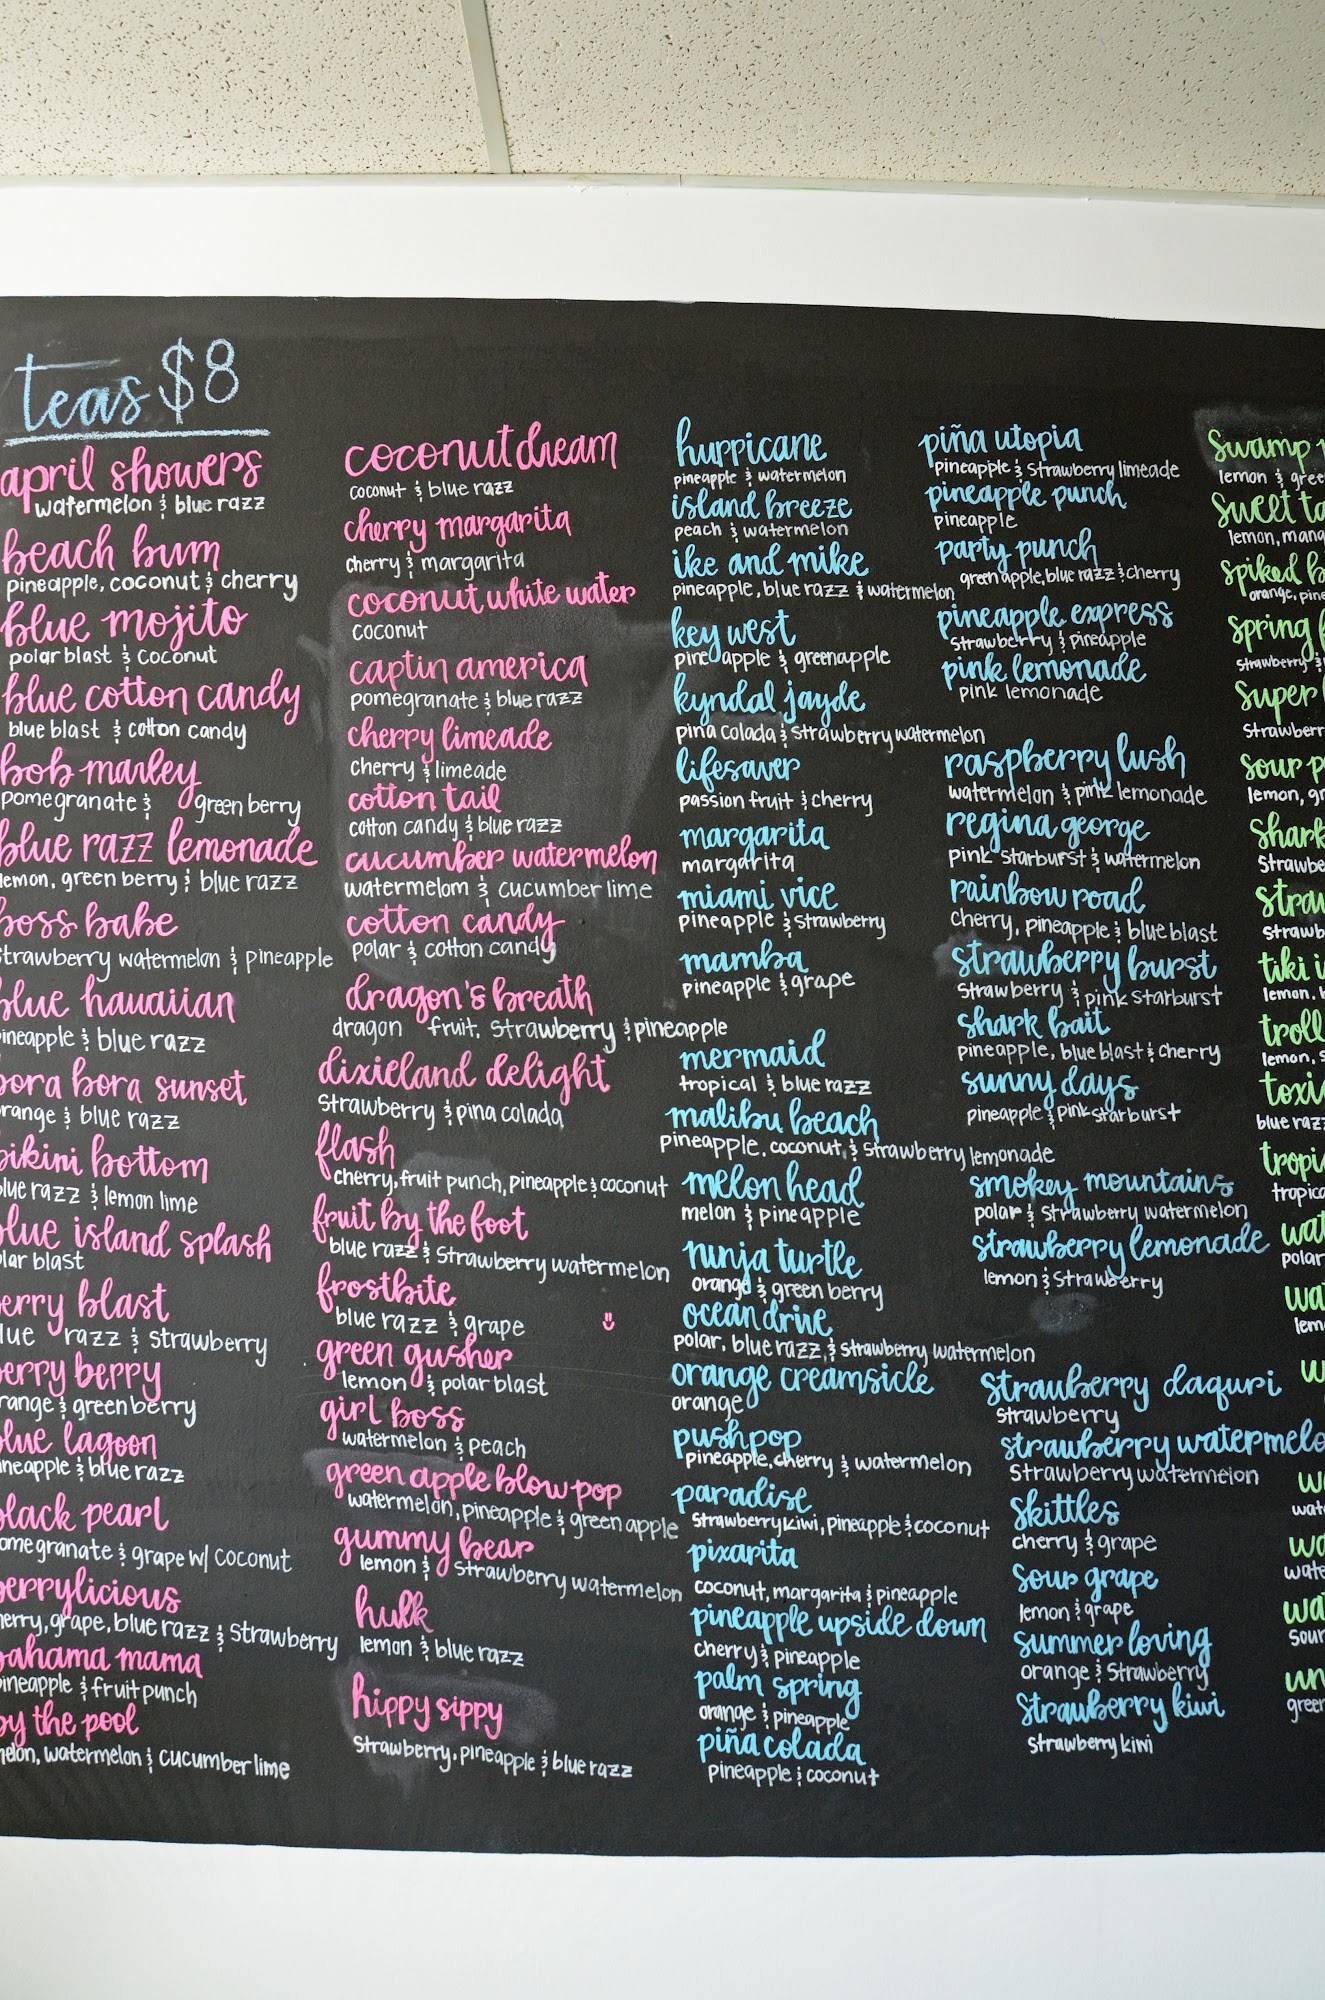 teas $8
april showers
watermelon & blue razz
beach bum
pineapple, coconut & cherry
blue mojito
polar blast & coconut
blue cotton candy
blue blast & cotton candy
bob marley
pomegranate & green berry
blue razz lemonade
lemon, green berry & blue razz
boss babe
strawberry watermelon & pineapple
blue hawaiian
pineapple & blue razz
bora bora sunset
orange & blue razz
bikini bottom
blue razz & lemon lime
blue island splash
olar blast
erry blast
lue razz & strawberry
erry berry
range & green berry
lue lagoon
ineapple & blue razz
black pearl
omegranate & grape w/ coconut
berrylicious
herry, grape, blue razz & strawberry
bahama mama
pineapple & fruit punch
by the pool
melon, watermelon & cucumber lime
coconut dream
coconut & blue razz
cherry margarita
cherry & margarita
coconut white water
coconut
captin america
pomegranate & blue razz
cherry limeade
cherry & limeade
cotton tail
cotton candy & blue razz
cucumber watermelon
watermelom & cucumber lime
cotton candy
polar & cotton candy
dragon's breath
dragon fruit, strawberry & pineapple
dixieland delight
strawberry & pina colada
flash
cherry, fruit punch, pineapple & coconut
fruit by the foot
blue razz & strawberry watermelon
frostbite
blue razz & grape
green gusher
lemon & polar blast
girl boss
watermelon & peach
green apple blow pop
watermelon, pineapple & green apple
gummy bear
lemon & strawberry watermelon
hulk
lemon & blue razz
hippy sippy
strawberry, pineapple & blue razz
hurricane
pineapple & watermelon
island breeze
peach & watermelon
ike and mike
pineapple, blue razz & watermelon
key west
pineapple & greenapple
kyndal jayde
pina colada & strawberry watermelon
lifesaver
passion fruit & cherry
margarita
margarita
miami vice
pineapple & strawberry
mamba
pineapple & grape
mermaid
tropical & blue razz
malibu beach
pineapple, coconut, & strawberry lemonade
melon head
melon & pineapple
ninja turtle
orange & green berry
ocean drive
polar, blue razz, & strawberry watermelon
orange creamsicle
orange
pushpop
pineapple, cherry & watermelon
paradise
strawberry kiwi, pineapple & coconut
pixarita
coconut, margarita & pineapple
pineapple upside down
cherry & pineapple
palm spring
orange & pineapple
piña colada
pineapple & coconut
piña utopia
pineapple & strawberry limeade
pineapple punch
pineapple
party punch
green apple, blue razz & cherry
pineapple express
strawberry & pineapple
pink lemonade
pink lemonade
raspberry lush
watermelon & pink lemonade
regina george
pink starburst & watermelon
rainbow road
cherry, pineapple & blue blast
strawberry burst
strawberry & pink starburst
shark bait
pineapple, blue blast & cherry
sunny days
pineapple & pink starburst
smokey mountains
polar & strawberry watermelon
strawberry lemonade
lemon & strawberry
strawberry daquri
strawberry
strawberry watermelo
strawberry watermelon
skittles
cherry & grape
sour grape
lemon & grape
summer loving
orange & strawberry
strawberry kiwi
strawberry kiwi
swamp
lemon & gree
sweet ta
lemon, mang
spiked b
orange, pine
spring
strawberry &
super
strawberr
sour p
lemon, gr
shark
strawbe
straw
strawb
tiki i
lemon,
troll
lemon, s
toxi
blue razz
tropi
tropica
wat
polar
wa
lem
w
w
wat
wa
wate
wa
sour
un
green